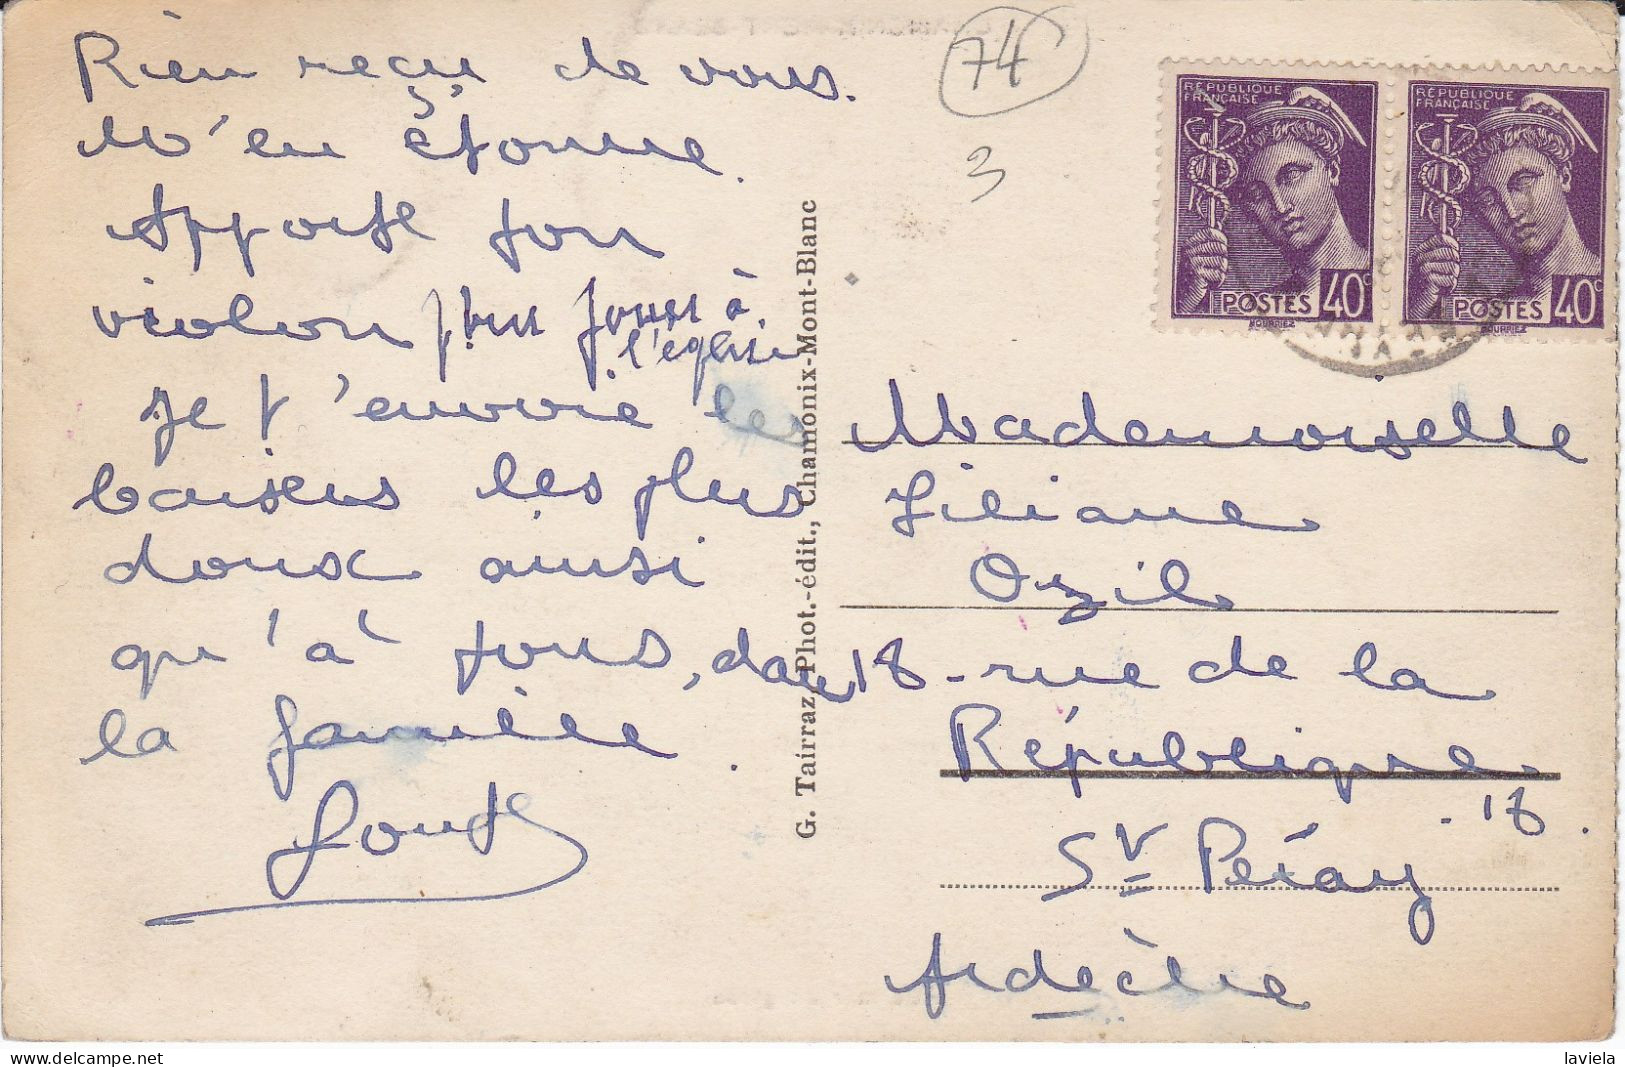 Rien reçu de vous.
M'en étonne.
Apporte ton
violon pour jouer à
l'église
Je t'envoie les
baisers les plus
doux ainsi
qu'à tous, dans
la famille.
74
3
G. Tairraz, Phot.-édit., Chamonix-Mont-Blanc
RÉPUBLIQUE
FRANÇAISE
POSTES 40c
RÉPUBLIQUE
FRANÇAISE
POSTES 40c
Mademoiselle
Liliane
Ozil
18 - rue de la
République
. 18 .
St Péray
Ardèche
laviela